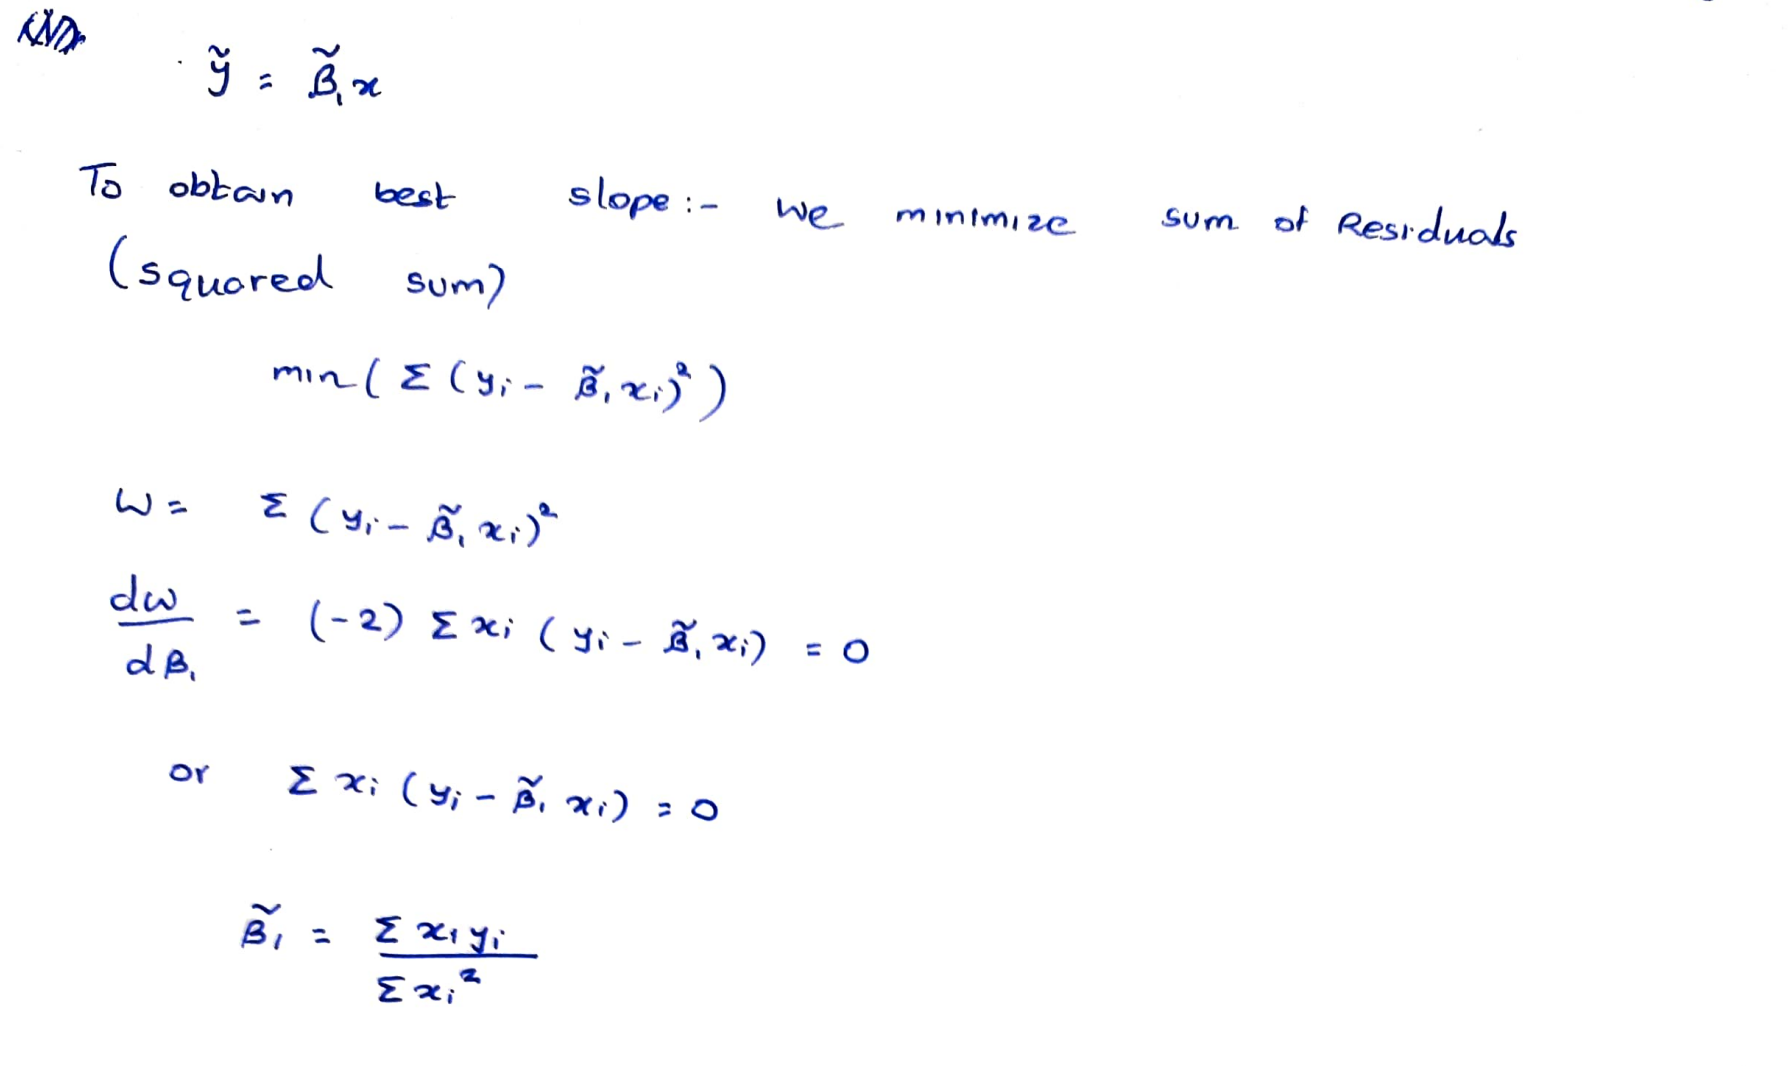 ỹ = β̃₁x
To obtain best slope :- we minimize sum of Residuals
(squared sum)
min ( Σ (yᵢ - β̃₁xᵢ)² )
W = Σ (yᵢ - β̃₁xᵢ)²
dw/dβ₁ = (-2) Σ xᵢ (yᵢ - β̃₁xᵢ) = 0
or Σ xᵢ (yᵢ - β̃₁xᵢ) = 0
β̃₁ = Σ xᵢyᵢ / Σ xᵢ²